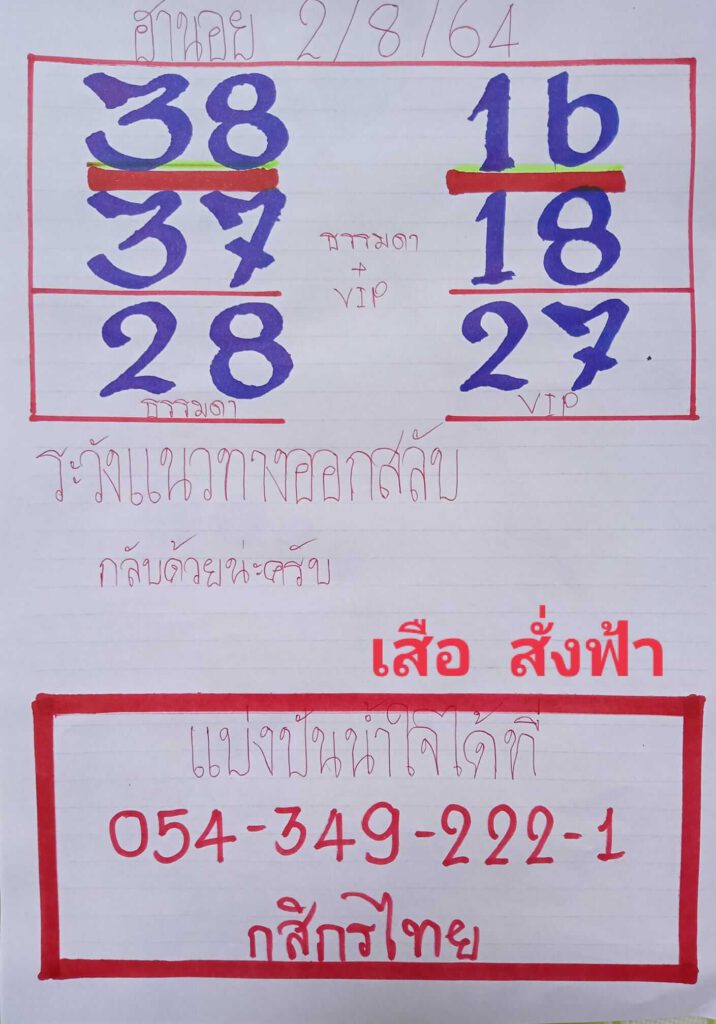 ฮานอย 2/8/64
38 16
37 18
ธรรมดา
+
VIP
28 27
ธรรมดา VIP
ระวังแนวทางออกสลับ
กลับด้วยน่ะครับ
เสือ สั่งฟ้า
แบ่งปันน้ำใจได้ที่
054-349-222-1
กสิกรไทย